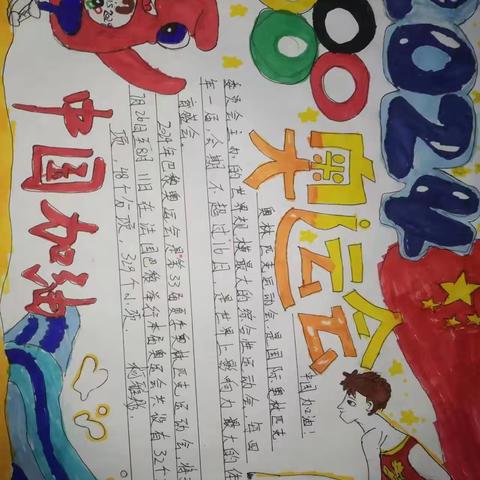 2024
奥运会
中国加油!
奥林匹克运动会是国际奥林匹克
委员会主办的世界规模最大的综合性运动会,每四
年一届,会期不超过16日,是世界上影响力最大的体
育盛会。
2024年巴黎奥运会是第33届夏季奥林匹克运动会,将
7月26日至8月11日在法国巴黎举行本届奥运会共设有32个
项,38个分项,329个小项
中国加油